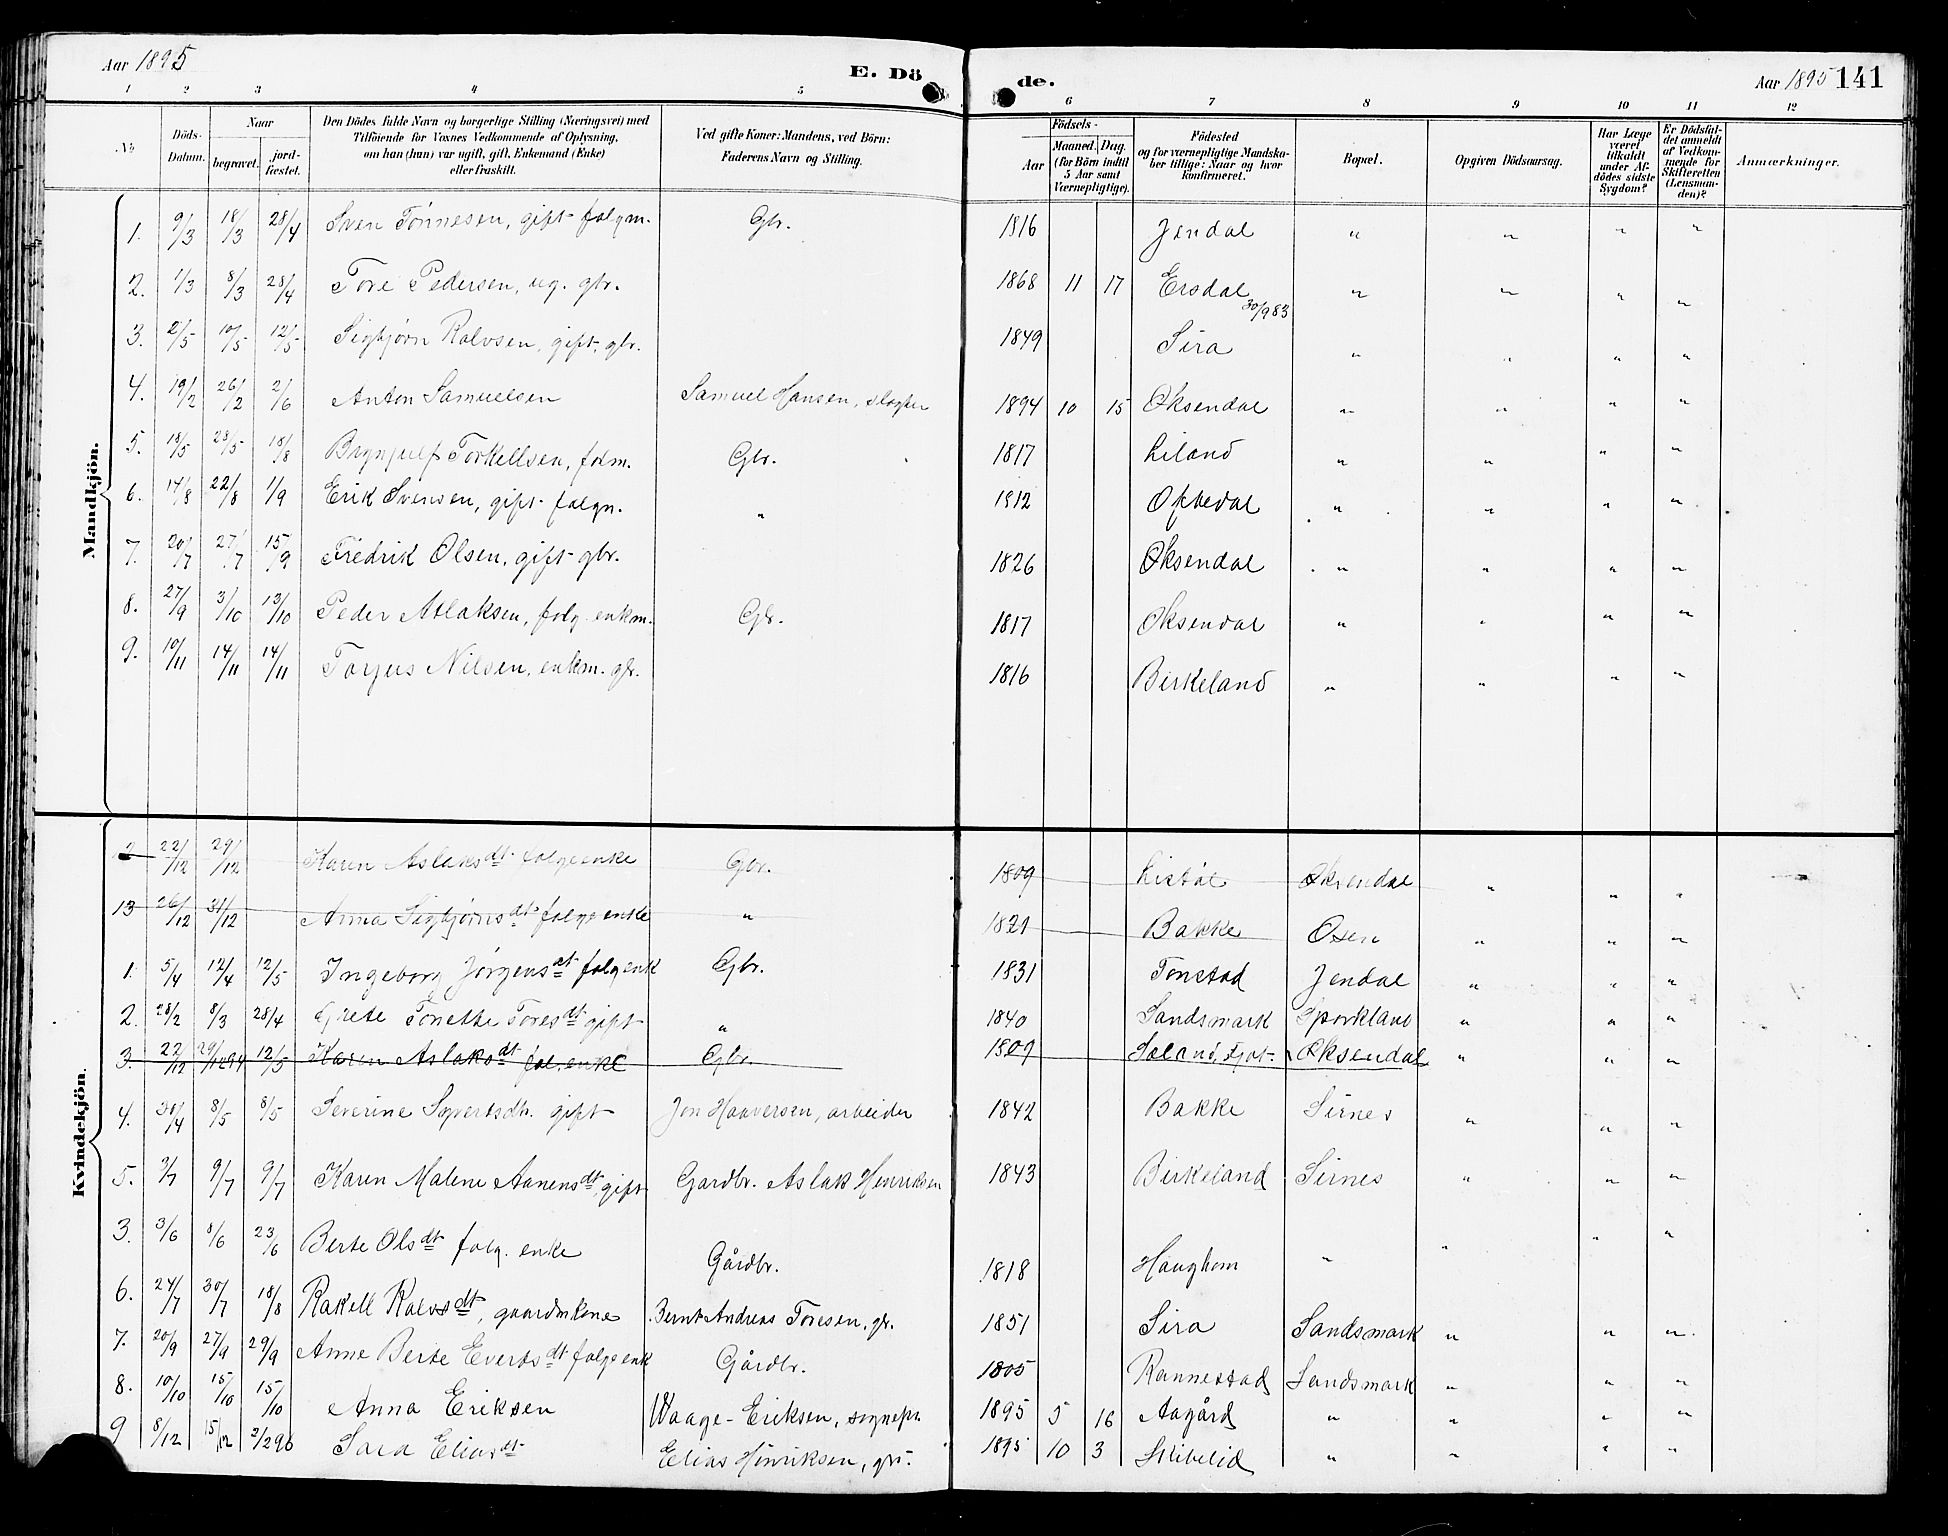 Aar 1895 E. Dö de. Aar 1895 141
1 2 3 4 5 6 7 8 9 10 11 12
No. Döds-Datum. Naar begravet. jord-fæstet. Den Dödes fulde Navn og borgerlige Stilling (Næringsvei) med Tilföiende for Voxnes Vedkommende af Oplysning, om han (hun) var ugift, gift, Enkemand (Enke) eller fraskilt. Ved gifte Koner: Mandens, ved Börn: Faderens Navn og Stilling. Födsels- Aar Maaned. Dag. (for Börn indtil 5 Aar samt Værnepligtige). Födested og for værnepligtige Mandskaber tillige: Naar og hvor konfirmeret. Bopæl. Opgiven Dödsaarsag. Har Læge været tilkaldt under Afdödes sidste Sygdom? Er Dödsfaldet anmeldt af Vedkommende for Skifteretten (Lensmanden)? Anmærkninger.
Mandkjön.
1. 9/3 18/3 28/4 Sven Tönnesen, gift folgm. Gbr. 1816 Jendal " " " "
2. 1/3 8/3 28/4 Tore Pedersen, ug. gbr. 1868 11 17 Ersdal 30/9 83 " " " "
3. 2/5 10/5 12/5 Sigbjørn Rolvsen, gift, gbr. 1849 Sira " " " "
4. 19/2 26/2 2/6 Anton Samuelsen Samuel Hansen, slagter 1894 10 15 Øksendal " " " "
5. 18/5 28/5 18/8 Brynjulf Torkellsen, folm. Gbr. 1817 Liland " " " "
6. 14/8 22/8 1/9 Erik Svensen, gift folgm. " 1812 Oftedal " " " "
7. 20/7 27/7 15/9 Fredrik Olsen, gift gbr. 1826 Øksendal " " " "
8. 27/9 3/10 13/10 Peder Atlaksen, folg. enkm. Gbr. 1817 Øksendal " " " "
9. 10/11 14/11 14/11 Torjus Nilsen, enkm. gbr. 1816 Birkeland " " " "
Kvindekjön.
2 22/12 29/12 Karen Aslaksdt folgeenke Gbr. 1809 Listøl Øksendal " " "
13 26/12 31/12 Anna Sigbjørnsdt folgeenke " 1821 Bakke Osen " " "
1. 5/4 12/4 12/5 Ingeborg Jørgensdt folgenk Gbr. 1831 Tonstad Jendal " " "
2. 28/2 8/3 28/4 Grete Tonette Toresdt gift " 1840 Sandsmark Sporkland " " "
3. 22/12 29/12 94 12/5 Karen Aslaksdt fol. enke Gbr. 1809 Øksendal " " "
4. 30/4 8/5 8/5 Severine Syvertsdtr. gift Jon Haaversen, arbeider 1842 Bakke Sirnes " " "
5. 3/7 9/7 9/7 Karen Malene Aanensdt, gift Gardbr. Aslak Henriksen 1843 Birkeland Sirnes " " "
3. 3/6 8/6 23/6 Berte Olsdt folg. enke Gårdbr. 1818 Haughom " " " "
6. 24/7 30/7 18/8 Rakell Rolvsdt, gaardmkone Bernt Andreas Toresen, gbr. 1851 Sira Sandsmark " " "
7. 20/9 27/9 29/9 Anne Berte Evertsdt folgeenk Gårdbr. 1805 Rannestad Sandsmark " " "
8. 10/10 15/10 15/10 Anna Eriksen Waage-Eriksen, sognepr. 1895 5 16 Aagård " " " "
9 8/12 15/12 2/2 96 Sara Eliasdt Elias Hinriksen, gbr. 1895 10 3 Skibelid " " " "